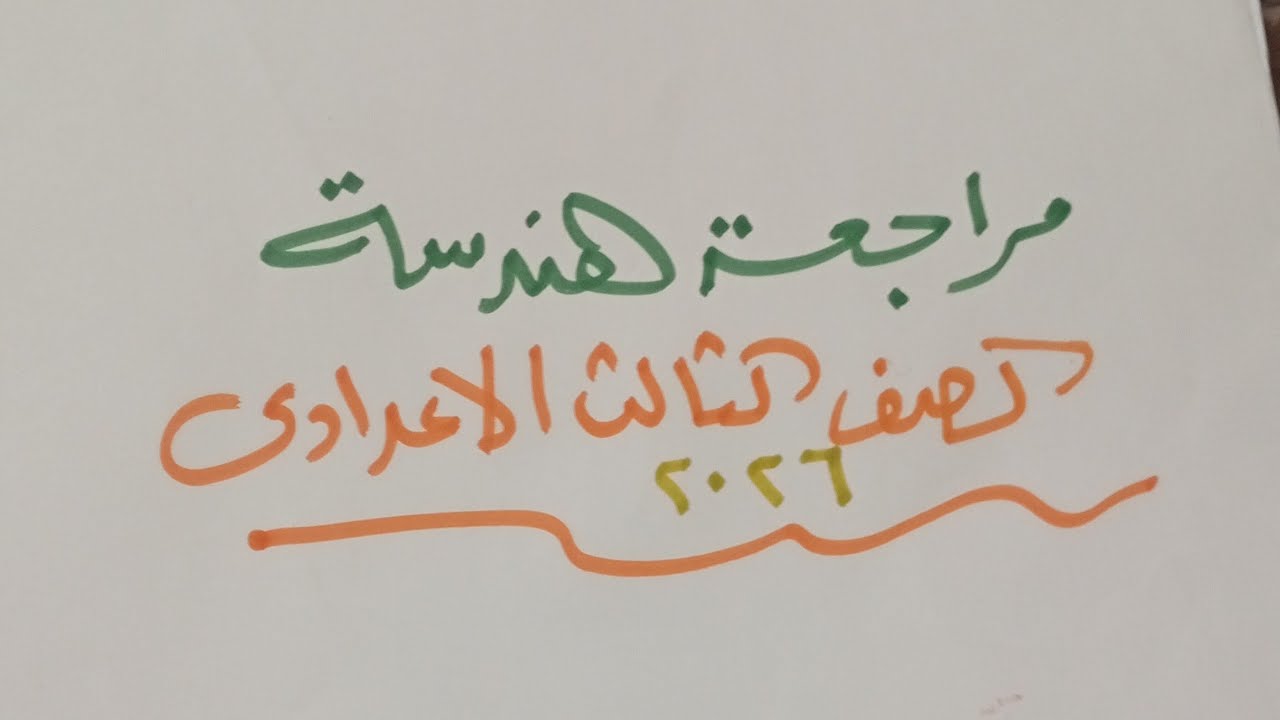 مراجعة هندسة
الصف الثالث الاعدادى
٢٠٢٦